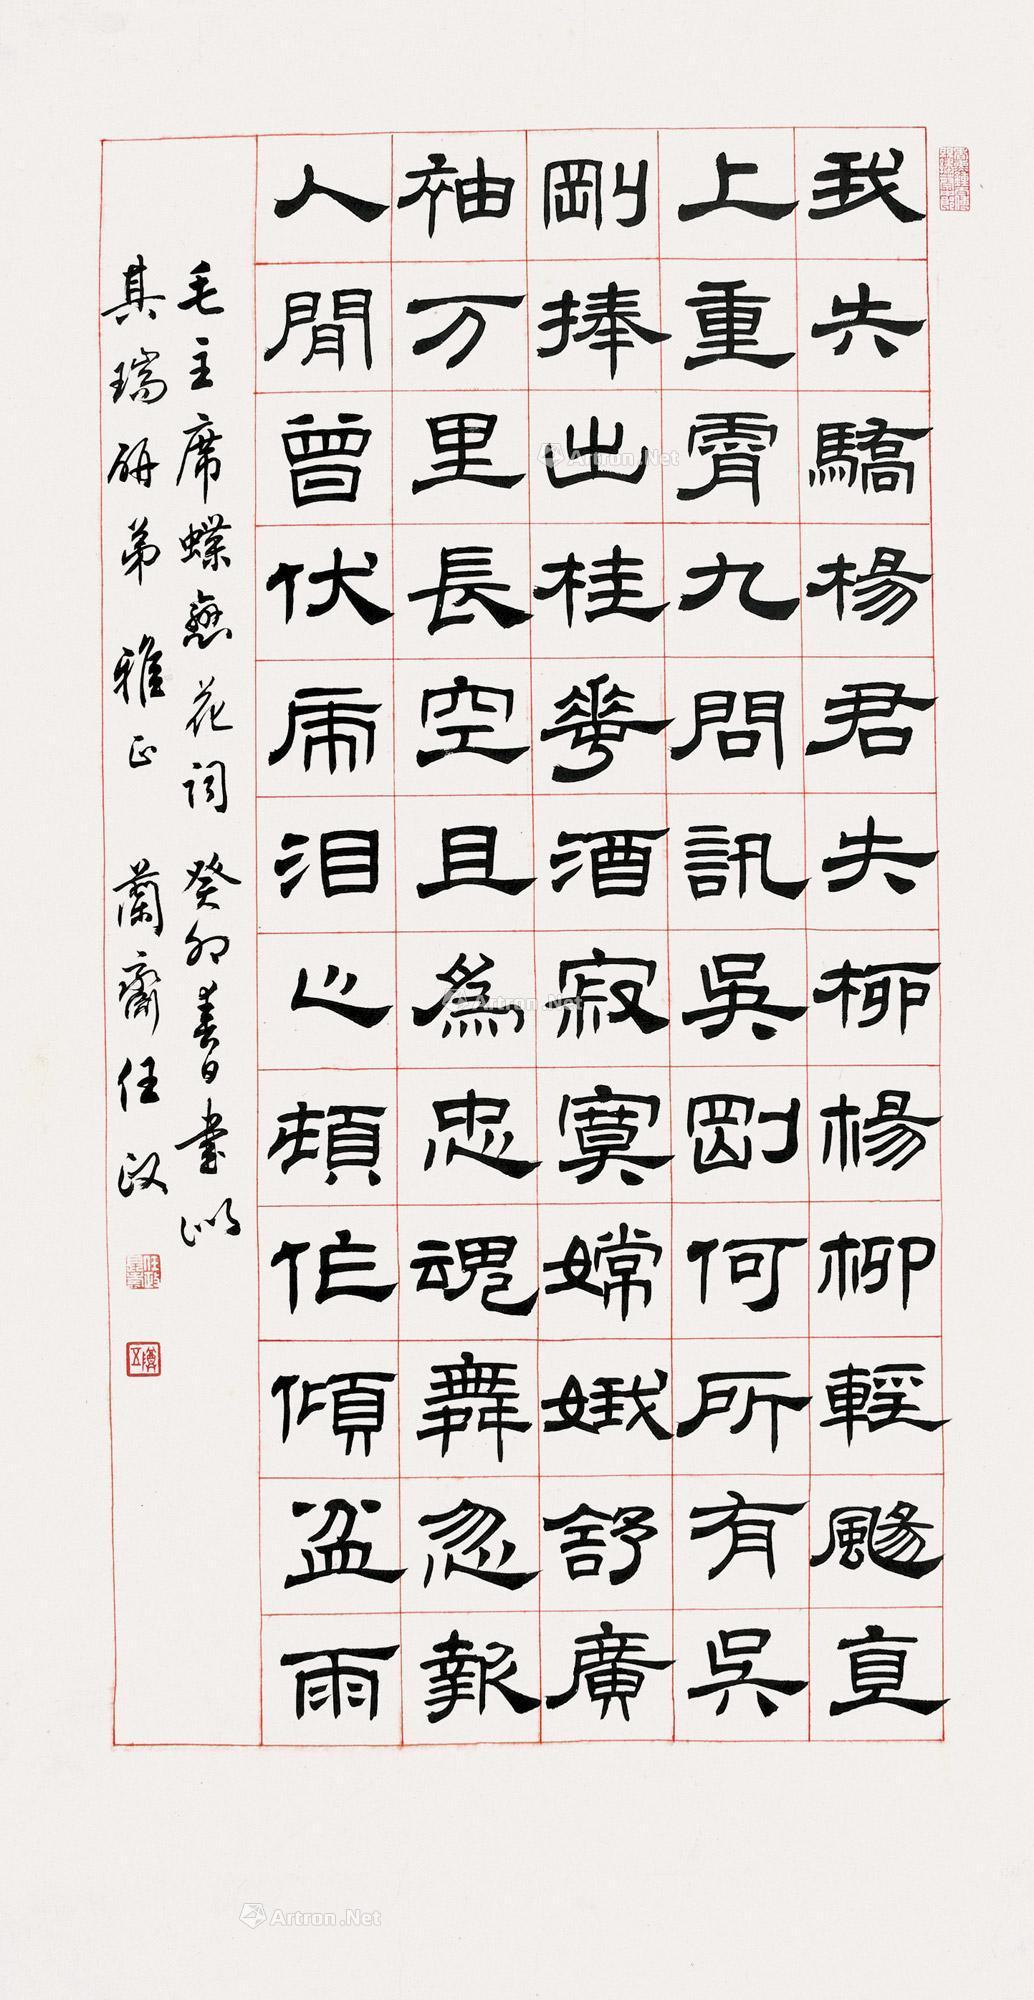 我失驕楊君失柳楊柳輕颺直
上重霄九問訊吳剛何所有吳
剛捧出桂華酒寂寞嫦娥舒廣
袖万里長空且為忠魂舞忽報
人閒曾伏虎泪飞頓作傾盆雨
毛主席蝶戀花詞 癸卯春日書似
其瑞研弟 雅正 蘭齋任政
Artron.Net
Artron.Net
Artron.Net